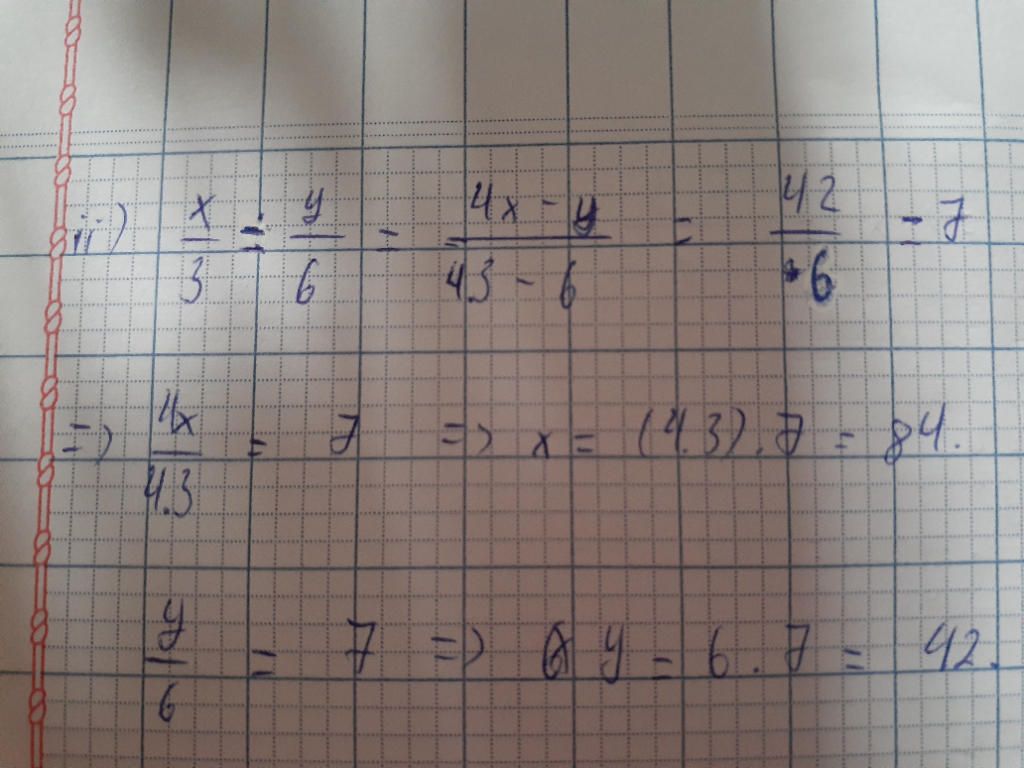 ii) x/3 = y/6 = 4x - y / 4.3 - 6 = 42/6 = 7
=> 4x/4.3 = 7 => x = (4.3) . 7 = 84.
y/6 = 7 => y = 6 . 7 = 42.